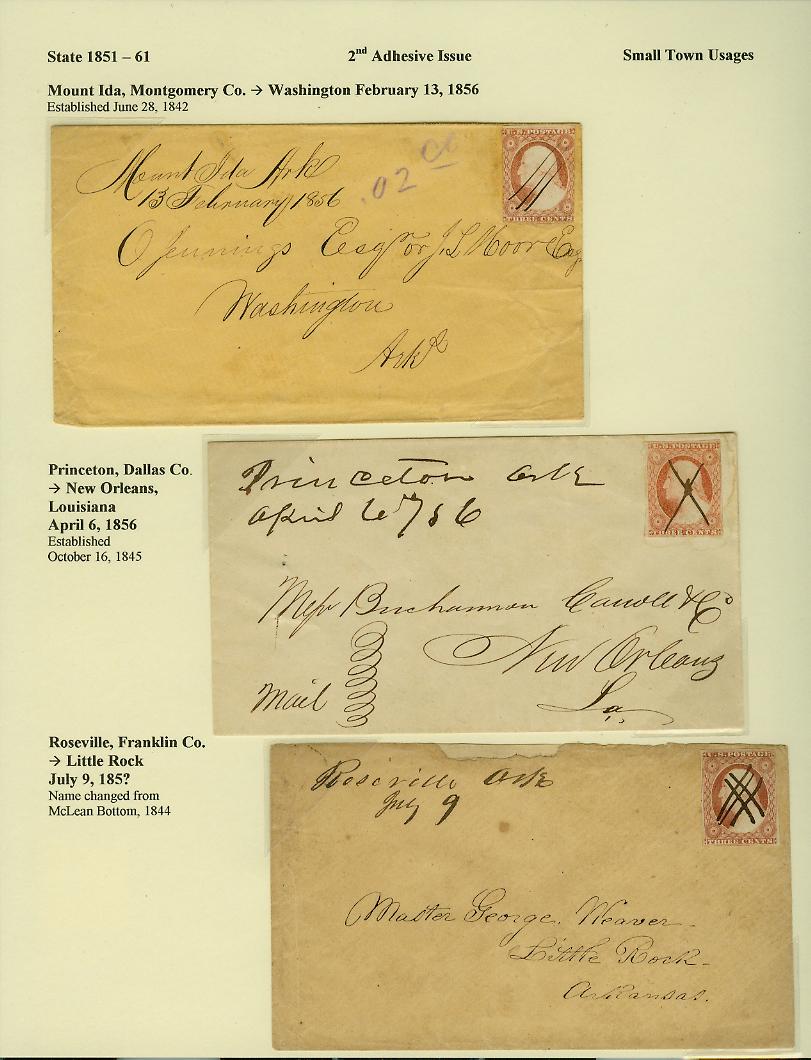 State 1851 – 61 2nd Adhesive Issue Small Town Usages
Mount Ida, Montgomery Co. → Washington February 13, 1856
Established June 28, 1842
U.S. POSTAGE
THREE CENTS
Mount Ida Ark
13 February 1856
.02 cc
O Jennings Esqr or J. L. Moore Esq
Washington
Arks
Princeton, Dallas Co.
→ New Orleans,
Louisiana
April 6, 1856
Established
October 16, 1845
U.S. POSTAGE
THREE CENTS
Princeton Ark
April 6th / 56
Messr Buchannon Carroll & Co
New Orleans
Mail
La.
Roseville, Franklin Co.
→ Little Rock
July 9, 185?
Name changed from
McLean Bottom, 1844
U.S. POSTAGE
THREE CENTS
Roseville Ark
July 9
Master George. Weaver
Little Rock
Arkansas.